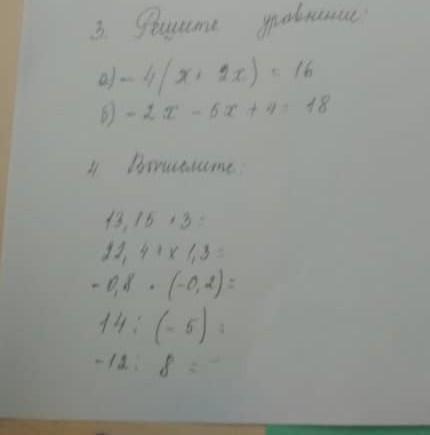 3. Решите уравнение:
а) - 4(x + 2x) = 16
б) - 2x - 5x + 4 = 18
4 Вычислите:
13,15 + 3 =
22,4 + x 1,3 =
- 0,8 · (-0,2) =
14 : (- 5) =
-12 : 8 =